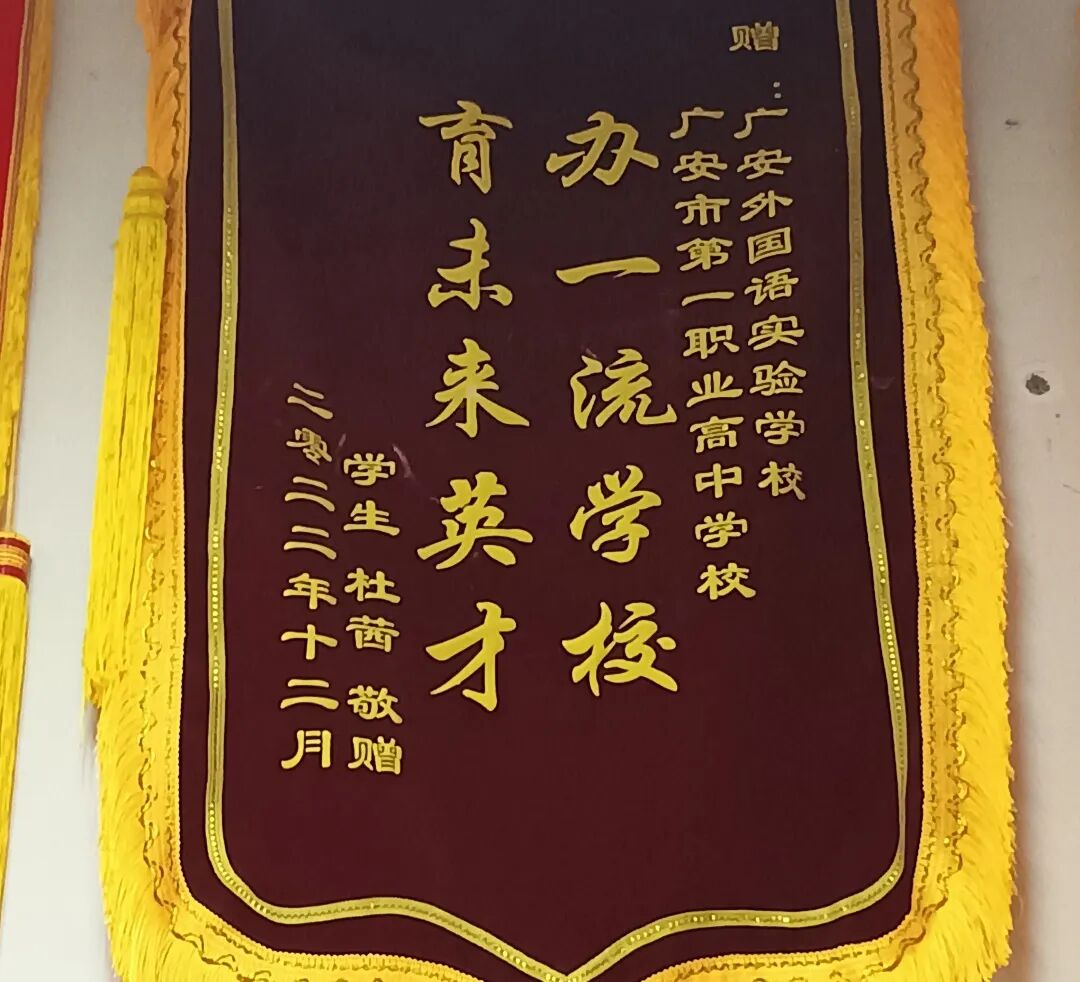 赠:广安外国语实验学校
广安市第一职业高中学校
办一流学校
育未来英才
学生 杜茜 敬赠
二零二二年十二月